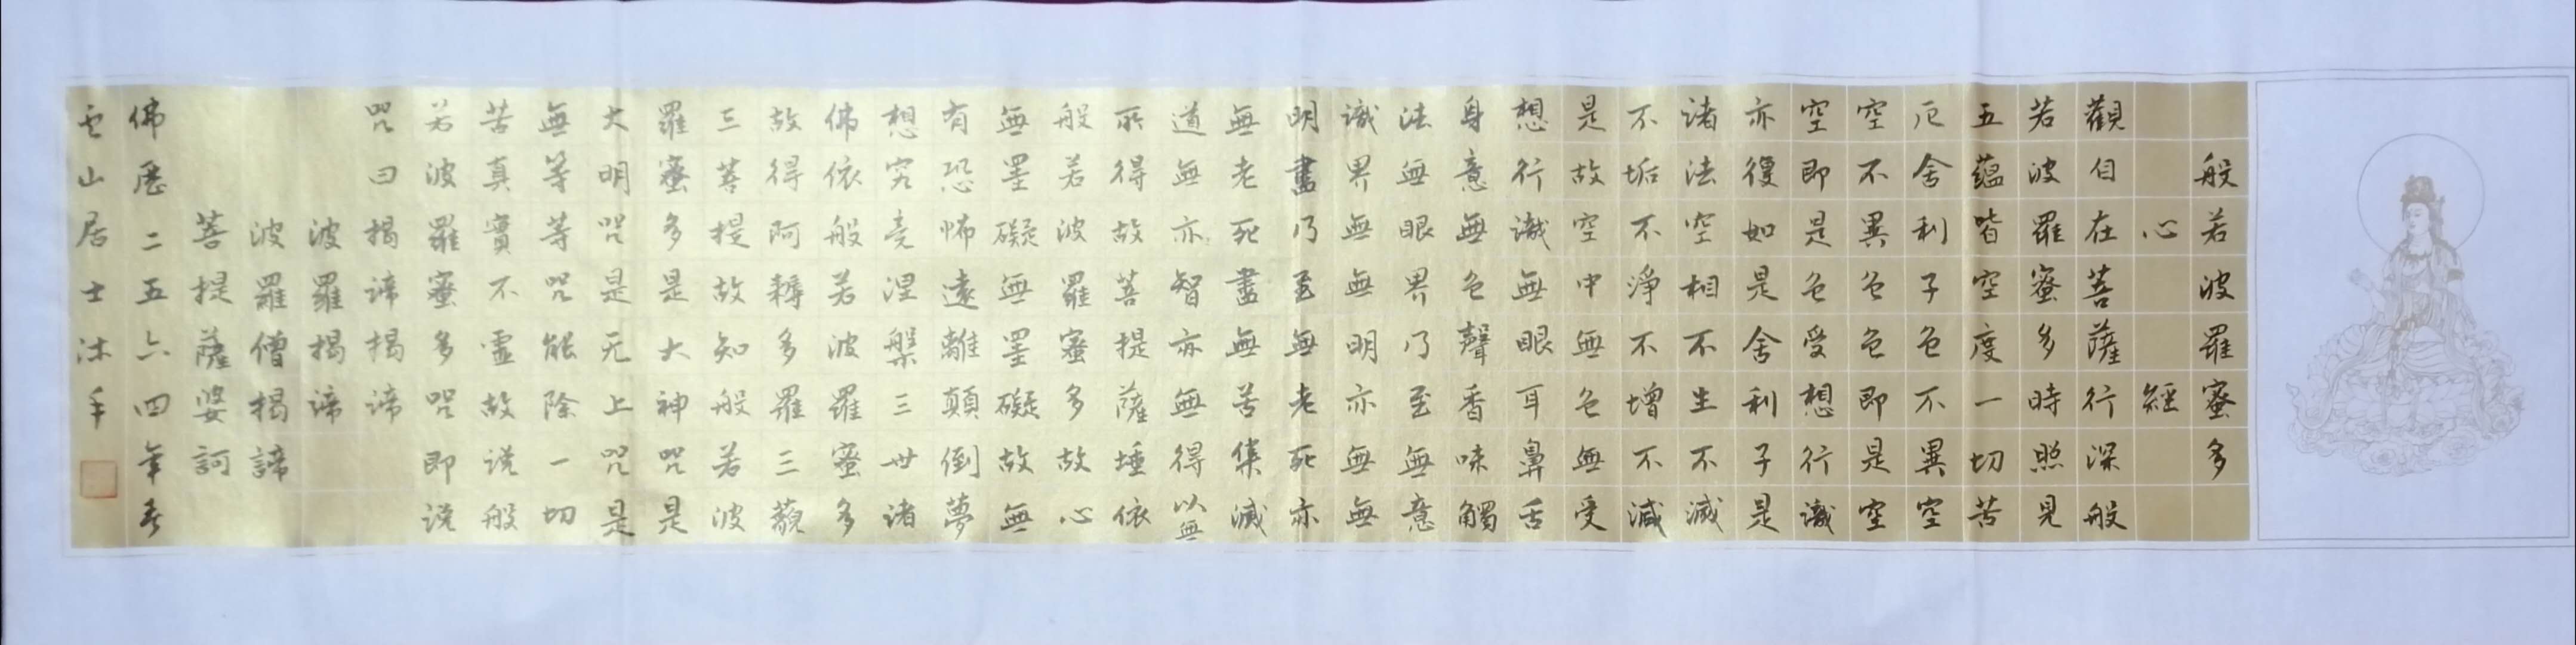 般若波羅蜜多
心經
觀自在菩薩行深般
若波羅蜜多時照見
五蘊皆空度一切苦
厄舍利子色不異空
空不異色色即是空
空即是色受想行識
亦復如是舍利子是
諸法空相不生不滅
不垢不淨不增不減
是故空中無色無受
想行識無眼耳鼻舌
身意無色聲香味觸
法無眼界乃至無意
識界無無明亦無無
明盡乃至無老死亦
無老死盡無苦集滅
道無亦智亦無得以無
所得故菩提薩埵依
般若波羅蜜多故心
無罣礙無罣礙故無
有恐怖遠離顛倒夢
想究竟涅槃三世諸
佛依般若波羅蜜多
故得阿耨多羅三藐
三菩提故知般若波
羅蜜多是大神咒是
大明咒是无上咒是
無等等咒能除一切
苦真實不虛故说般
若波羅蜜多咒即说
咒曰揭諦揭諦
波羅揭諦
波羅僧揭諦
菩提薩婆訶
佛歷二五六四年春
云山居士沐手